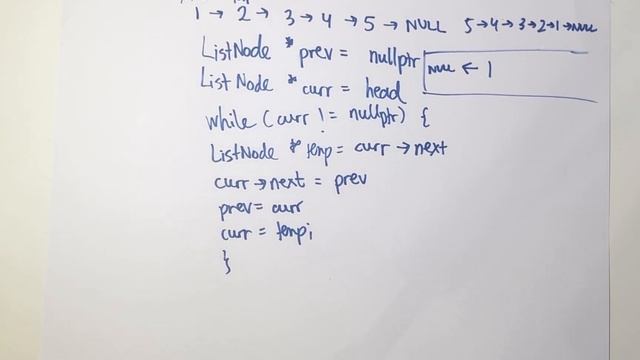 1 → 2 → 3 → 4 → 5 → NULL 5→4→3→2→1→NULL
ListNode * prev = nullptr
NULL ← 1
ListNode * curr = head
while (curr != nullptr) {
ListNode * temp = curr → next
curr → next = prev
prev = curr
curr = temp;
}